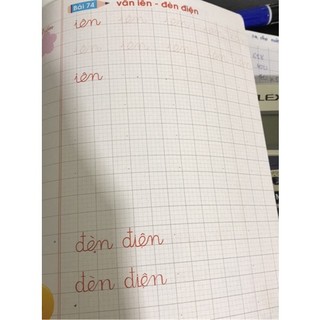 Bài 74 vần iên - đèn điện
iên
iên
đèn điện
đèn điện